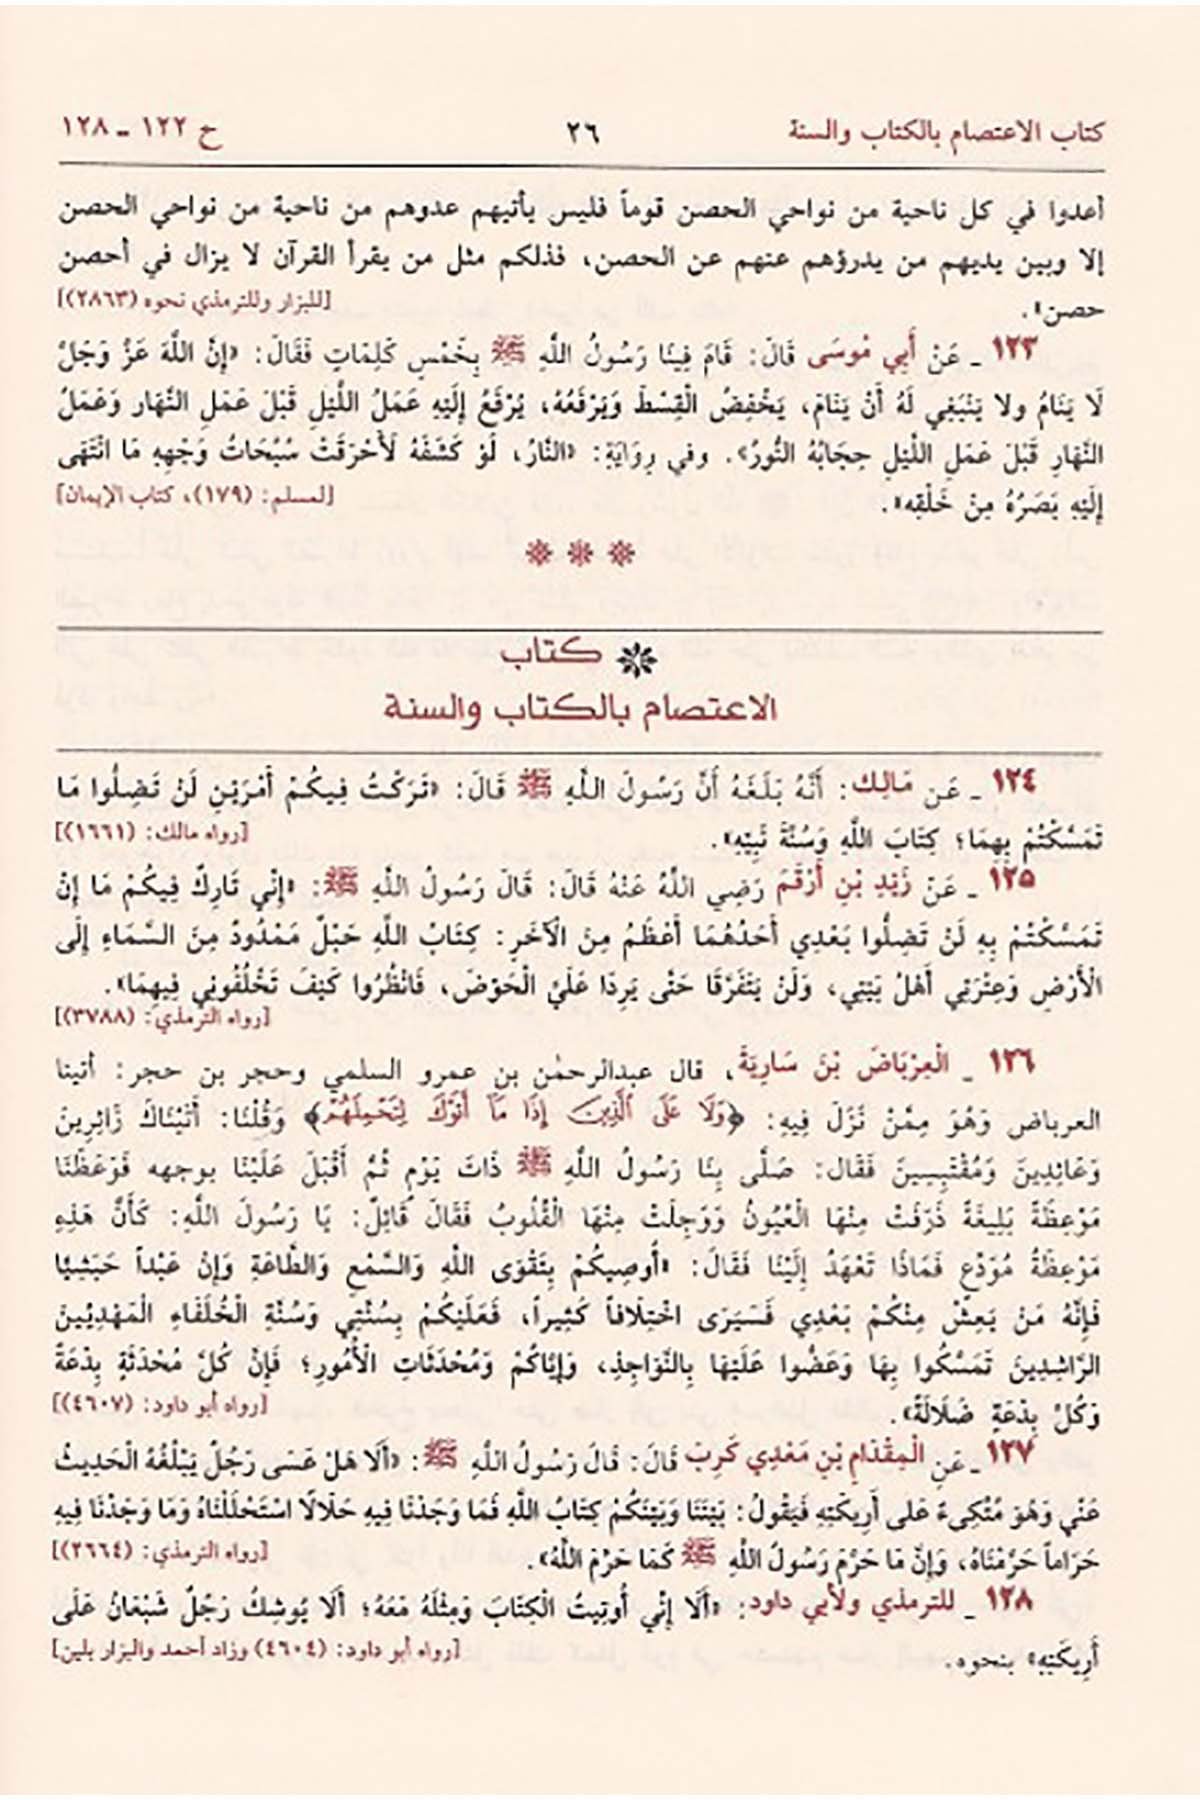 كتاب الاعتصام بالكتاب والسنة ٢٦ ح ١٢٢ ـ ١٢٨
أعدوا في كل ناحية من نواحي الحصن قوماً فليس يأتيهم عدوهم من ناحية من نواحي الحصن
إلا وبين يديهم من يدرؤهم عنهم عن الحصن، فذلكم مثل من يقرأ القرآن لا يزال في أحصن
حصن». [للبزار وللترمذي نحوه (٢٨٦٣)]
١٢٣ ـ عَنْ أَبِي مُوسَى قَالَ: قَامَ فِينَا رَسُولُ اللَّهِ ﷺ بِخَمْسِ كَلِمَاتٍ فَقَالَ: «إِنَّ اللَّهَ عَزَّ وَجَلَّ
لَا يَنَامُ ولا يَنْبَغِي لَهُ أَنْ يَنَامَ، يَخْفِضُ الْقِسْطَ وَيَرْفَعُهُ، يُرْفَعُ إِلَيْهِ عَمَلُ اللَّيْلِ قَبْلَ عَمَلِ النَّهَارِ وَعَمَلُ
النَّهَارِ قَبْلَ عَمَلِ اللَّيْلِ حِجَابُهُ النُّورُ». وفي رِوَايَةٍ: «النَّارُ، لَوْ كَشَفَهُ لَأَحْرَقَتْ سُبُحَاتُ وَجْهِهِ مَا انْتَهَى
إِلَيْهِ بَصَرُهُ مِنْ خَلْقِهِ». [لمسلم: (١٧٩)، كتاب الإيمان]
كتاب
الاعتصام بالكتاب والسنة
١٢٤ ـ عَن مَالِك: أَنَّهُ بَلَغَهُ أَنَّ رَسُولَ اللَّهِ ﷺ قَالَ: «تَرَكْتُ فِيكُمْ أَمْرَيْنِ لَنْ تَضِلُّوا مَا
تَمَسَّكْتُمْ بِهِمَا؛ كِتَابَ اللَّهِ وَسُنَّةَ نَبِيِّهِ». [رواه مالك: (١٦٦١)]
١٢٥ ـ عَنْ زَيْدِ بْنِ أَرْقَمَ رَضِي اللَّهُ عَنْهُ قَالَ: قَالَ رَسُولُ اللَّهِ ﷺ: «إِنِّي تَارِكٌ فِيكُمْ مَا إِنْ
تَمَسَّكْتُمْ بِهِ لَنْ تَضِلُّوا بَعْدِي أَحَدُهُمَا أَعْظَمُ مِنَ الْآخَرِ: كِتَابُ اللَّهِ حَبْلٌ مَمْدُودٌ مِنَ السَّمَاءِ إِلَى
الْأَرْضِ وَعِتْرَتِي أَهْلُ بَيْتِي، وَلَنْ يَتَفَرَّقَا حَتَّى يَرِدَا عَلَيَّ الْحَوْضَ، فَانْظُرُوا كَيْفَ تَخْلُفُونِي فِيهِمَا».
[رواه الترمذي: (٣٧٨٨)]
١٢٦ ـ الْعِرْبَاضَ بْنَ سَارِيَةَ، قال عبدالرحمٰن بن عمرو السلمي وحجر بن حجر: أتينا
العرباض وَهُوَ مِمَّنْ نَزَلَ فِيهِ: ﴿وَلَا عَلَى ٱلَّذِينَ إِذَا مَآ أَتَوْكَ لِتَحْمِلَهُمْ﴾ وَقُلْنَا: أَتَيْنَاكَ زَائِرِينَ
وَعَائِدِينَ وَمُقْتَبِسِينَ فَقَال: صَلَّى بِنَا رَسُولُ اللَّهِ ﷺ ذَاتَ يَوْمٍ ثُمَّ أَقْبَلَ عَلَيْنَا بوجهه فَوَعَظَنَا
مَوْعِظَةً بَلِيغَةً ذَرَفَتْ مِنْهَا الْعُيُونُ وَوَجِلَتْ مِنْهَا الْقُلُوبُ فَقَالَ قَائِلٌ: يَا رَسُولَ اللَّهِ: كَأَنَّ هَذِهِ
مَوْعِظَةُ مُوَدِّعٍ فَمَاذَا تَعْهَدُ إِلَيْنَا فَقَالَ: «أُوصِيكُمْ بِتَقْوَى اللَّهِ وَالسَّمْعِ وَالطَّاعَةِ وَإِنْ عَبْداً حَبَشِيًّا
فَإِنَّهُ مَنْ يَعِشْ مِنْكُمْ بَعْدِي فَسَيَرَى اخْتِلَافاً كَثِيراً، فَعَلَيْكُمْ بِسُنَّتِي وَسُنَّةِ الْخُلَفَاءِ الْمَهْدِيِّينَ
الرَّاشِدِينَ تَمَسَّكُوا بِهَا وَعَضُّوا عَلَيْهَا بِالنَّوَاجِذِ، وَإِيَّاكُمْ وَمُحْدَثَاتِ الْأُمُورِ؛ فَإِنَّ كُلَّ مُحْدَثَةٍ بِدْعَةٌ
وَكُلَّ بِدْعَةٍ ضَلَالَةٌ». [رواه أبو داود: (٤٦٠٧)]
١٢٧ ـ عَنِ الْمِقْدَامِ بْنِ مَعْدِي كَرِبَ قَالَ: قَالَ رَسُولُ اللَّهِ ﷺ: «أَلَا هَلْ عَسَى رَجُلٌ يَبْلُغُهُ الْحَدِيثُ
عَنِّي وَهُوَ مُتَّكِىءٌ عَلَى أَرِيكَتِهِ فَيَقُولُ: بَيْنَنَا وَبَيْنَكُمْ كِتَابُ اللَّهِ فَمَا وَجَدْنَا فِيهِ حَلَالًا اسْتَحْلَلْنَاهُ وَمَا وَجَدْنَا فِيهِ
حَرَاماً حَرَّمْنَاهُ، وَإِنَّ مَا حَرَّمَ رَسُولُ اللَّهِ ﷺ كَمَا حَرَّمَ اللَّهُ». [رواه الترمذي: (٢٦٦٤)]
١٢٨ ـ للترمذي ولأبي داود: «أَلَا إِنِّي أُوتِيتُ الْكِتَابَ وَمِثْلَهُ مَعَهُ؛ أَلَا يُوشِكُ رَجُلٌ شَبْعَانُ عَلَى
أَرِيكَتِهِ» بنحوه. [رواه أبو داود: (٤٦٠٤) وزاد أحمد والبزار بلين]